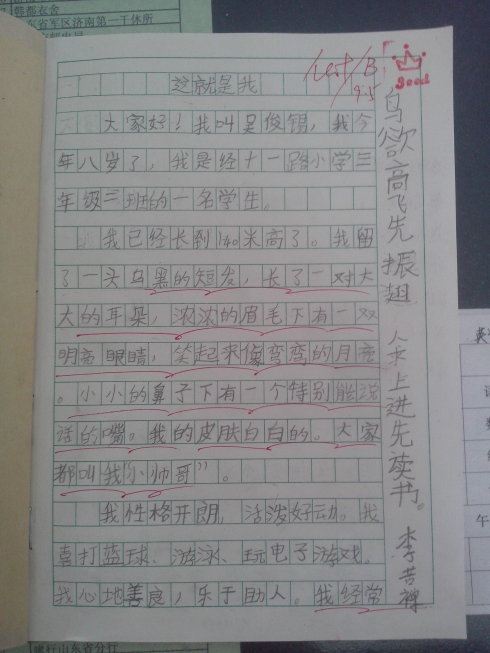 鞋都衣舍
东省军区济南第一干休所
best/B
9.5
Good
这就是我
大家好！我叫吴俊锡，我今
年八岁了，我是经十一路小学三
年级三班的一名学生。
我已经长到140米高了。我留
了一头乌黑的短发，长了一对大
大的耳朵，浓浓的眉毛下有一双
明亮眼睛，笑起来像弯弯的月亮
。小小的鼻子下有一个特别能说
话的嘴。我的皮肤白白的。大家
都叫我“小帅哥”。
我性格开朗，活泼好动。我
喜打蓝球、游泳、玩电子游戏。
我心地善良，乐于助人。我经常
鸟欲高飞先振翅 人求上进先读书。 李苦禅
银行山东省分行